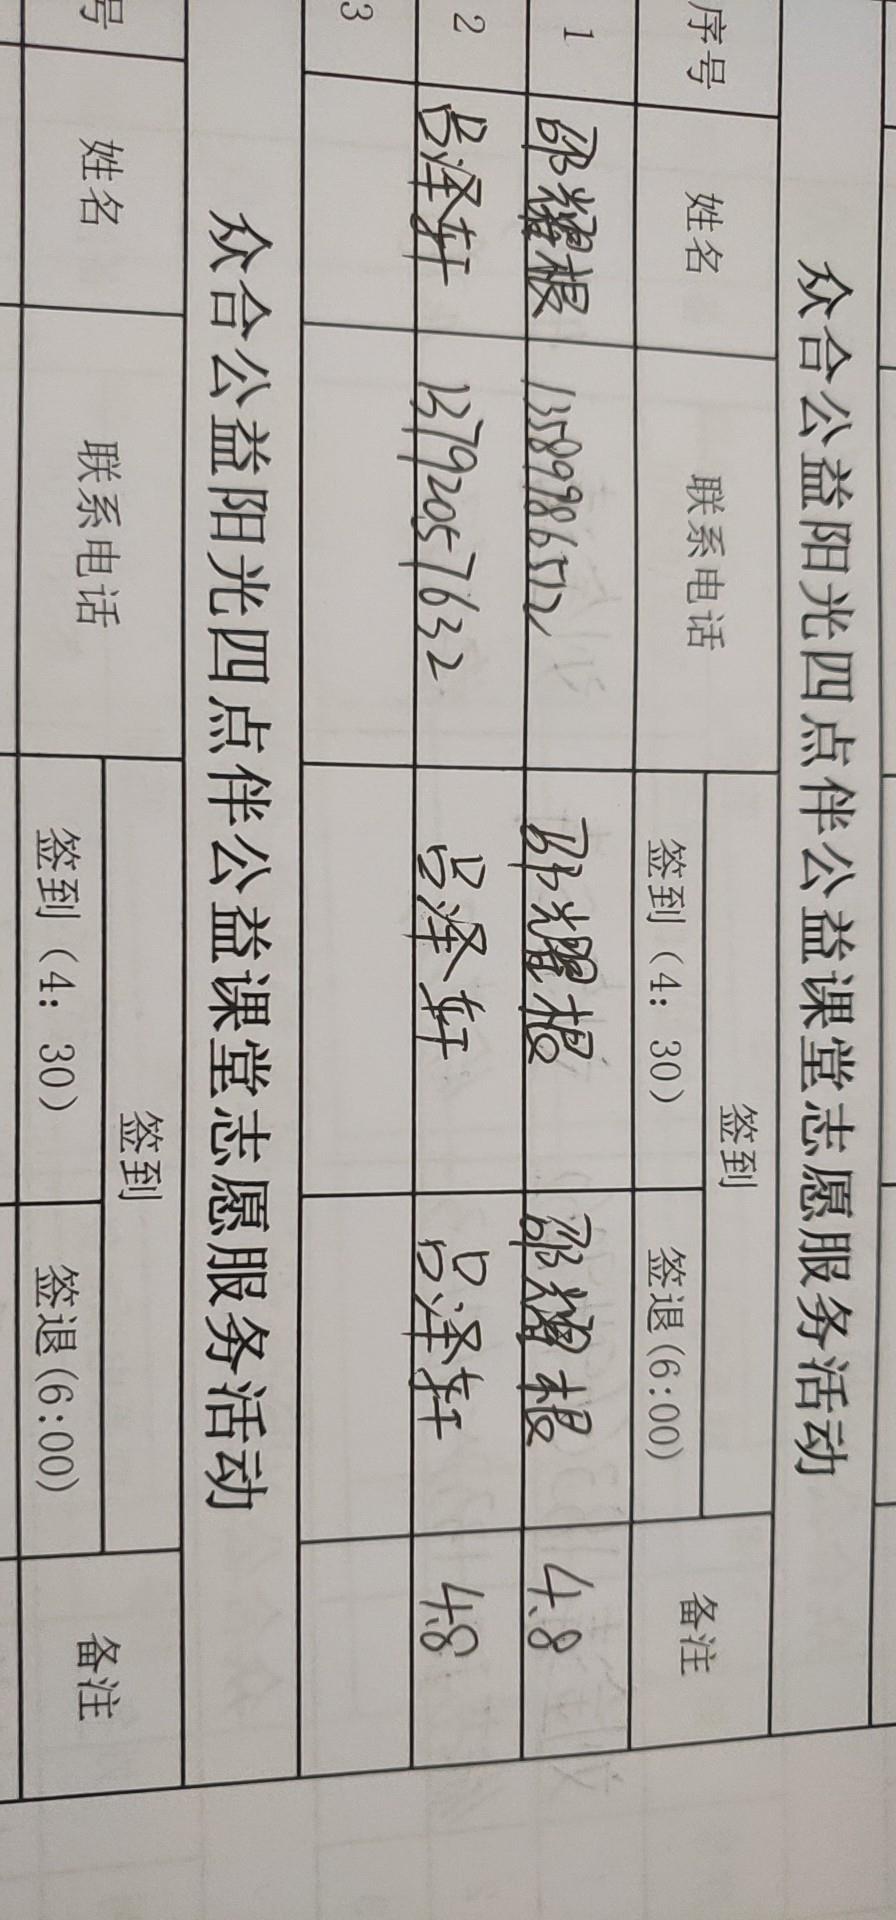 众合公益阳光四点伴公益课堂志愿服务活动
序号 姓名 联系电话 签到 备注
签到（4：30） 签退(6:00)
1 邵耀根 13589986512 邵耀根 邵耀根 4.8
2 吕泽轩 13792057632 吕泽轩 吕泽轩 4.8
3
众合公益阳光四点伴公益课堂志愿服务活动
号 姓名 联系电话 签到 备注
签到（4：30） 签退(6:00)